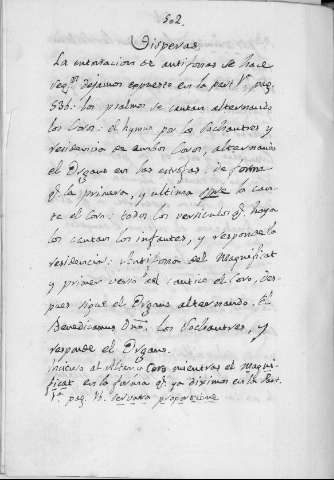 502.
Visperas
La entonacion de antifonas se hace
seg.n dejamos expuesto en la part. 1.a pag.
536: los psalmos se cantan alternando
los Coros: el hymno por los Sochantres y
residencia de ambos Coros, alternando
el Organo en las estrofas: de forma
q.e la primera, y ultima siempre la can-
te el Coro: todos los versiculos q.e haya
los cantan los infantes, y responde la
residencia: Antifona del Magnificat
y primer verso del cantico el Coro, des-
pues sigue el Organo alternando. El
Benedicamus Dno. los Sochantres, y
responde el Organo.
al ultimo Coro mientras el Magni-
ficat en la forma q.e ya diximos en la Part.
1.a pag. 16. servata proportione